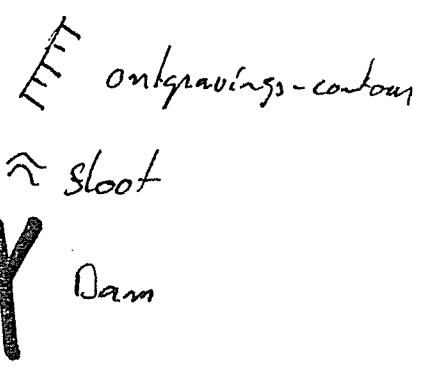 ontgravings-contour
sloot
Dam